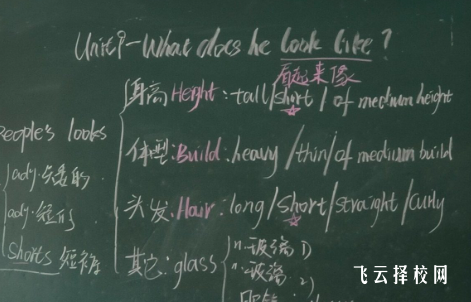 Unit9-What does he look like?
看起来像
身高 Height: tall/short/of medium height
People's looks
体型: Build: heavy/thin/of medium build
adj. 矮的
头发: Hair: long/short/straight/curly
adj. 短的
shorts 短裤
其它: glass
n. 玻璃 1)
n. 玻璃 2)
飞云择校网